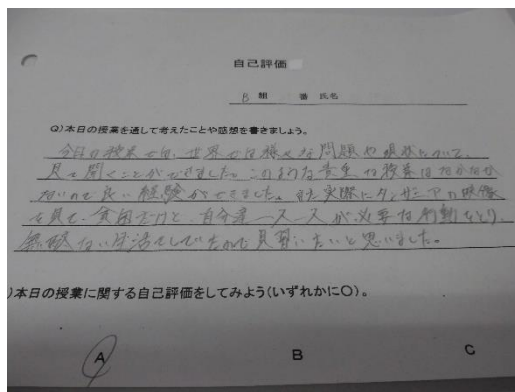 自己評価
B 組 番 氏名
Q)本日の授業を通して考えたことや感想を書きましょう。
今日の授業では、世界では様々な問題や現状について、
見て聞くことができました。このような貴重な授業はなかなか
ないので良い経験ができました。また実際にタンザニアの映像
を見て、貧困だけど、自分達一人一人が必要な行動をとり、
無駄ない生活をしていたので見習いたいと思いました。
)本日の授業に関する自己評価をしてみよう(いずれかに○)。
A B C